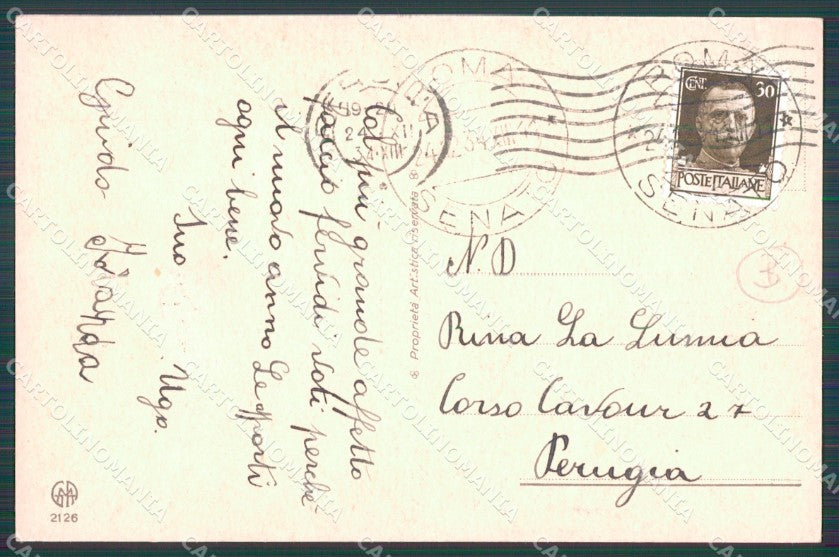 Col più grande affetto
faccio fervidi voti perché
il nuovo anno Le apporti
ogni bene.
Suo Ugo.
Guido Jolanda
Proprietà Artistica riservata
2126
ROMA
SENATO
24.12.34.XIII
ROMA
SENATO
CENT. 30
POSTE ITALIANE
N. D
Rina La Lumia
Corso Cavour 27
Perugia
B
CARTOLINOMANIA